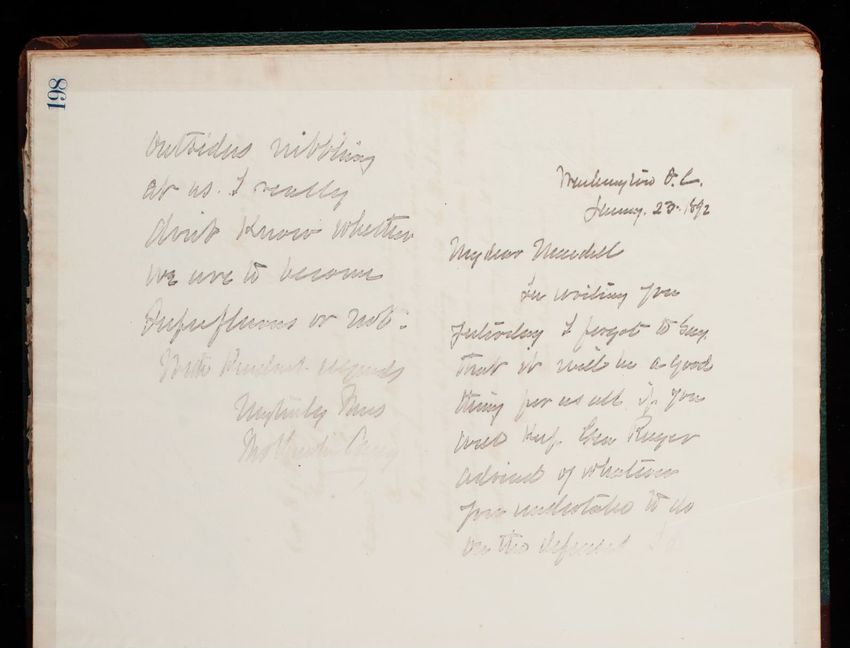 198
outsiders nibbling
at us. I really
don't know whether
we are to become
superfluous or not.
With kindest regards
Very truly yours
Washington D.C.
23. 1892
My dear
In writing you
Saturday I forgot to say
that it will be a good
thing for us all if you
will keep Gen Ruger
advised of whatever
you undertake to do
on the